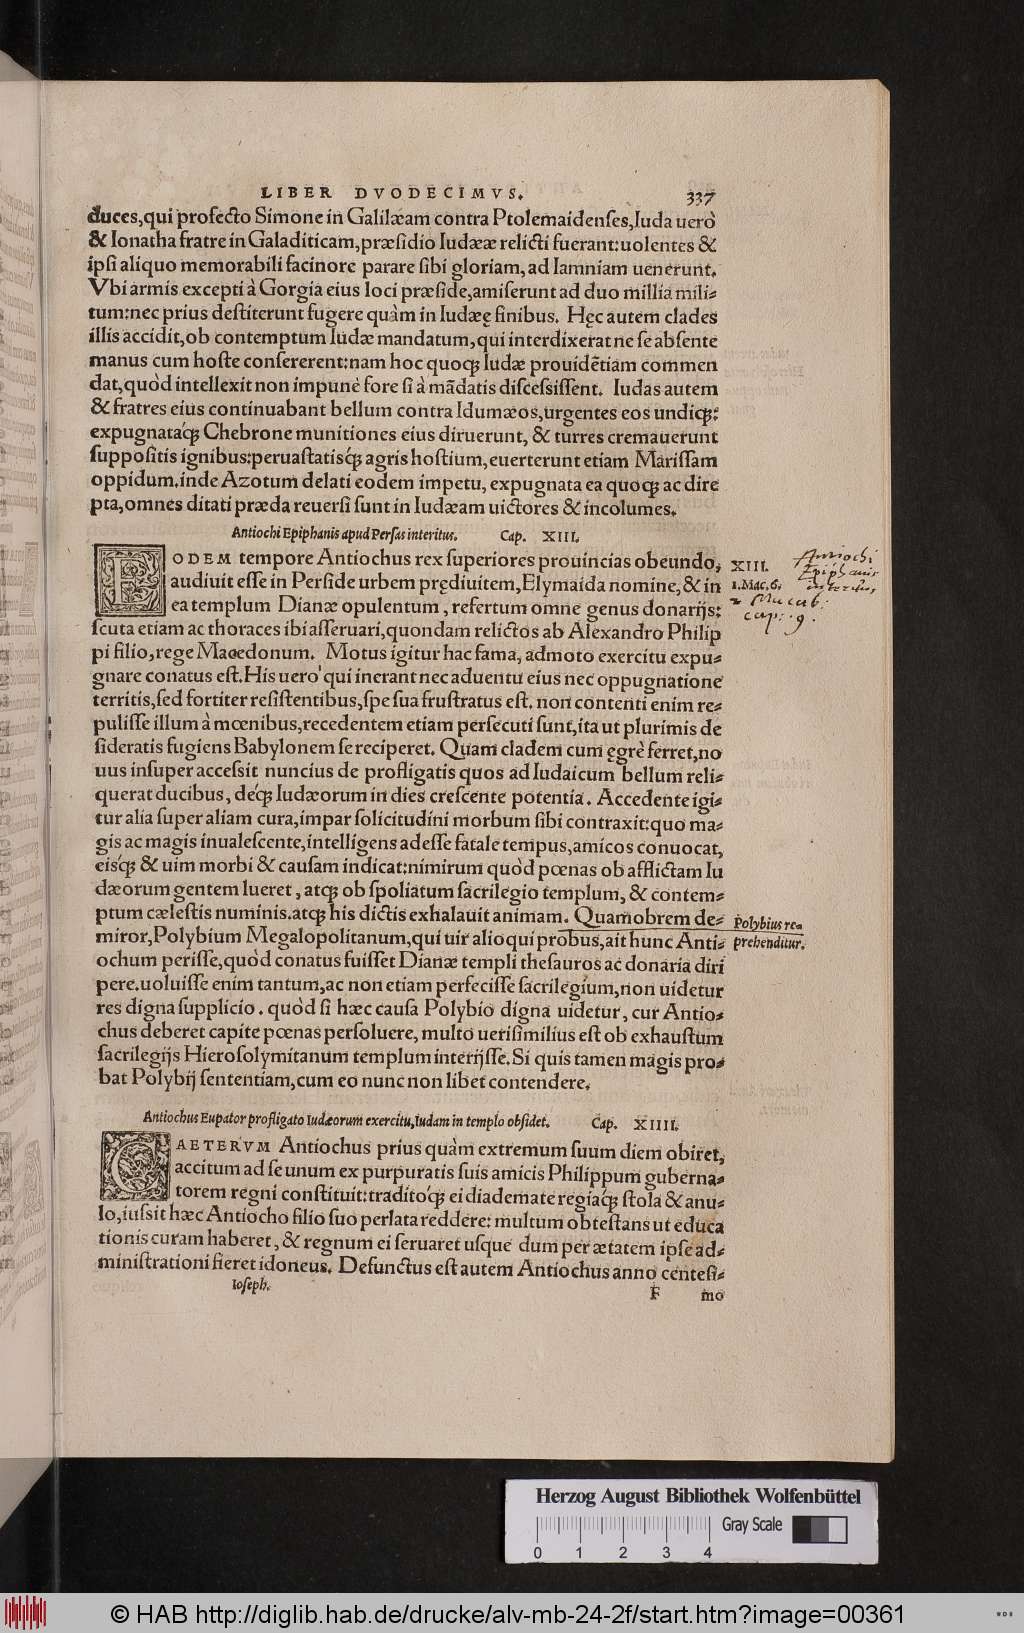 LIBER DVODECIMVS. 337
duces,qui profecto Simone in Galilæam contra Ptolemaidenſes,Iuda uerò
& Ionatha fratre in Galaditicam,præſidio Iudææ relicti fuerant:uolentes &
ipſi aliquo memorabili facinore parare ſibi gloriam,ad Iamniam uenerunt.
Vbi armis excepti à Gorgia eius loci præſide,amiſerunt ad duo millia mili⸗
tum:nec prius deſtiterunt fugere quàm in Iudæę finibus. Hęc autem clades
illis accidit,ob contemptum Iudæ mandatum,qui interdixerat ne ſe abſente
manus cum hoſte conſererent:nam hoc quoqꝫ Iudæ prouidẽtiam commen
dat,quòd intellexit non impunè fore ſi à mãdatis diſceſsiſſent. Iudas autem
& fratres eius continuabant bellum contra Idumæos,urgentes eos undiqꝫ:
expugnataqꝫ́ Chebrone munitiones eius diruerunt, & turres cremauerunt
ſuppoſitis ignibus:peruaſtatisqꝫ́ agris hoſtium,euerterunt etiam Mariſſam
oppidum.inde Azotum delati eodem impetu, expugnata ea quoqꝫ ac dire
pta,omnes ditati præda reuerſi ſunt in Iudæam uictores & incolumes.
Antiochi Epiphanis apud Perſas interitus. Cap. XIII.
EODEM tempore Antiochus rex ſuperiores prouincias obeundo,
audiuit eſſe in Perſide urbem prędiuitem,Elymaida nomine,& in
ea templum Dianæ opulentum, refertum omne genus donarijs:
ſcuta etiam ac thoraces ibi aſſeruari,quondam relictos ab Alexandro Philip
pi filio,rege Macedonum. Motus igitur hac fama, admoto exercitu expu⸗
gnare conatus eſt.His uero' qui inerant nec aduentu eius nec oppugnatione
territis,ſed fortiter reſiſtentibus,ſpe ſua fruſtratus eſt. non contenti enim re⸗
puliſſe illum à mœnibus,recedentem etiam perſecuti ſunt,ita ut plurimis de
ſideratis fugiens Babylonem ſe reciperet. Quam cladem cum ęgrè ferret,no
uus inſuper acceſsit nuncius de profligatis quos ad Iudaicum bellum reli⸗
querat ducibus, deqꝫ́ Iudæorum in dies creſcente potentia. Accedente igi⸗
tur alia ſuper aliam cura,impar ſolicitudini morbum ſibi contraxit:quo ma⸗
gis ac magis inualeſcente,intelligens adeſſe fatale tempus,amicos conuocat,
eisqꝫ́ & uim morbi & cauſam indicat:nimirum quòd pœnas ob afflictam Iu
dæorum gentem lueret, atqꝫ ob ſpoliatum ſacrilegio templum, & contem⸗
ptum cæleſtis numinis.atqꝫ his dictis exhalauit animam. Quamobrem de⸗
miror,Polybium Megalopolitanum,qui uir alioqui probus,ait hunc Anti⸗
ochum perijſſe,quòd conatus fuiſſet Dianæ templi theſauros ac donaria diri
pere.uoluiſſe enim tantum,ac non etiam perfeciſſe ſacrilegium,non uidetur
res digna ſupplicio. quòd ſi hæc cauſa Polybio digna uidetur, cur Antio⸗
chus deberet capite pœnas perſoluere, multo ueriſimilius eſt ob exhauſtum
ſacrilegijs Hieroſolymitanum templum interijſſe.Si quis tamen magis pro⸗
bat Polybij ſententiam,cum eo nunc non libet contendere.
Antiochus Eupator profligato Iudæorum exercitu,Iudam in templo obſidet. Cap. XIIII.
CAETERVM Antiochus prius quàm extremum ſuum diem obiret,
accitum ad ſe unum ex purpuratis ſuis amicis Philippum guberna⸗
torem regni conſtituit:traditoqꝫ́ ei diademate regiaqꝫ́ ſtola & anu⸗
lo,iuſsit hæc Antiocho filio ſuo perlata reddere: multum obteſtans ut educa
tionis curam haberet, & regnum ei ſeruaret uſque dum per ætatem ipſe ad⸗
miniſtrationi fieret idoneus. Defunctus eſt autem Antiochus anno centeſi⸗
Ioſeph. F mo
XIII.
1.Mac.6.
Antiochi
Epiphanis
interitus,
2 Macab.
cap: 9.
Polybius re⸗
prehenditur.
Herzog August Bibliothek Wolfenbüttel
Gray Scale
0 1 2 3 4
© HAB http://diglib.hab.de/drucke/alv-mb-24-2f/start.htm?image=00361